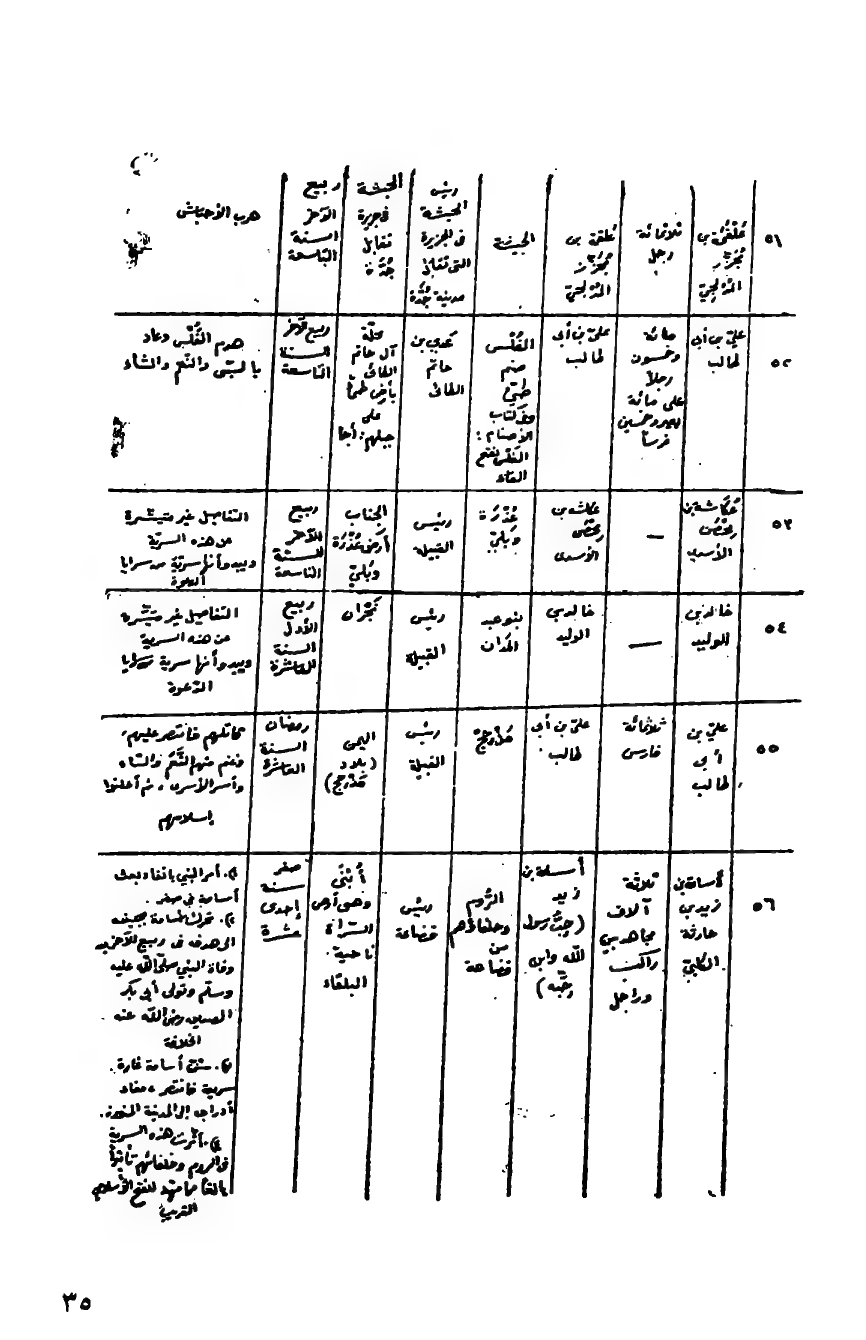 ٥١
عُلْقُمَة بن
مُجَزِّز
المُدْلجيّ
ثلاثمائة
رجل
علقمة بن
مُجَزِّز
المُدْلجيّ
الحبشة
رئيس
الحبشة
في الجزيرة
التي تقابل
مدينة جُدَّة
الحبشة
في جزيرة
تقابل
جُدَّة
ربيع
الآخر
السنة
التاسعة
هرب الأحباش
٥٢
عليّ بن أبي
طالب
مائة
وخمسون
رجلاً
على مائة
بعير وخمسين
فرساً
عليّ بن أبي
طالب
الفُلْس
صنم
طيّئ
وفي كتاب
الأصنام :
الفَلْس بفتح
الفاء
عَدِي بن
حاتم
الطائي
محلّة
آل حاتم
الطائي
بأرض طيّئ
على
جبلهم: أجا
ربيع الآخر
السنة
التاسعة
هدم الفُلْس وعاد
بالسّبي والنّعم والشاء
٥٣
عُكَّاشة بن
مِحْصَن
الأسديّ
—
عكاشة بن
مِحْصَن
الأسدي
عُذْرَة
وبَليّ
رئيس
القبيلة
الجناب
أرض عُذْرَة
وبَليّ
ربيع
الآخر
السنة
التاسعة
التفاصيل غير متيسّرة
عن هذه السريّة
ويبدو أنها سريّة من سرايا
الدعوة
٥٤
خالد بن
الوليد
—
خالد بن
الوليد
بنو عبد
المَدَان
رئيس
القبيلة
نَجْران
ربيع
الأول
السنة
العاشرة
التفاصيل غير متيسّرة
عن هذه السرية
ويبدو أنها سرية من سرايا
الدّعوة
٥٥
عليّ بن
أبي
طالب
ثلاثمائة
فارس
عليّ بن أبي
طالب
مَذْحِجْ
رئيس
القبيلة
اليمن
(بلاد
مَذْحِج)
رمضان
السنة
العاشرة
قاتلهم فانتصر عليهم،
وغنم منهم النَّعَمَ والشاء
وأسر الأسرى، ثم أعلنوا
إسلامهم
٥٦
أسامة بن
زيد بن
حارثة
الكلبيّ
ثلاثة
آلاف
مجاهد بين
راكب
وراجل
أسامة بن
زيد
(حِبّ رسول
الله وابن
حِبّه)
الرُّوم
وحلفاؤهم
من
قضاعة
رئيس
قضاعة
أُبْنَى
وهي أرض
السَّراة
ناحية
البلقاء
صفر
سنة
إحدى
عشرة
١). أمر النبي بإنفاذ بعث
أسامة في صفر.
٢). تحرك أسامة بجيشه
إلى هدفه في ربيع الآخر بعد
وفاة النبي صلّى الله عليه
وسلّم وتولّي أبي بكر
الصديق رضي الله عنه
الخلافة
٣). شنّ أسامة غارة
سريعة فانتصر، وعاد
أدراجه إلى المدينة المنورة.
٤). أثّرت هذه السرية
في الروم وحلفائهم تأثيراً
بالغاً مما مهّد للفتح الإسلامي
القريب
٣٥